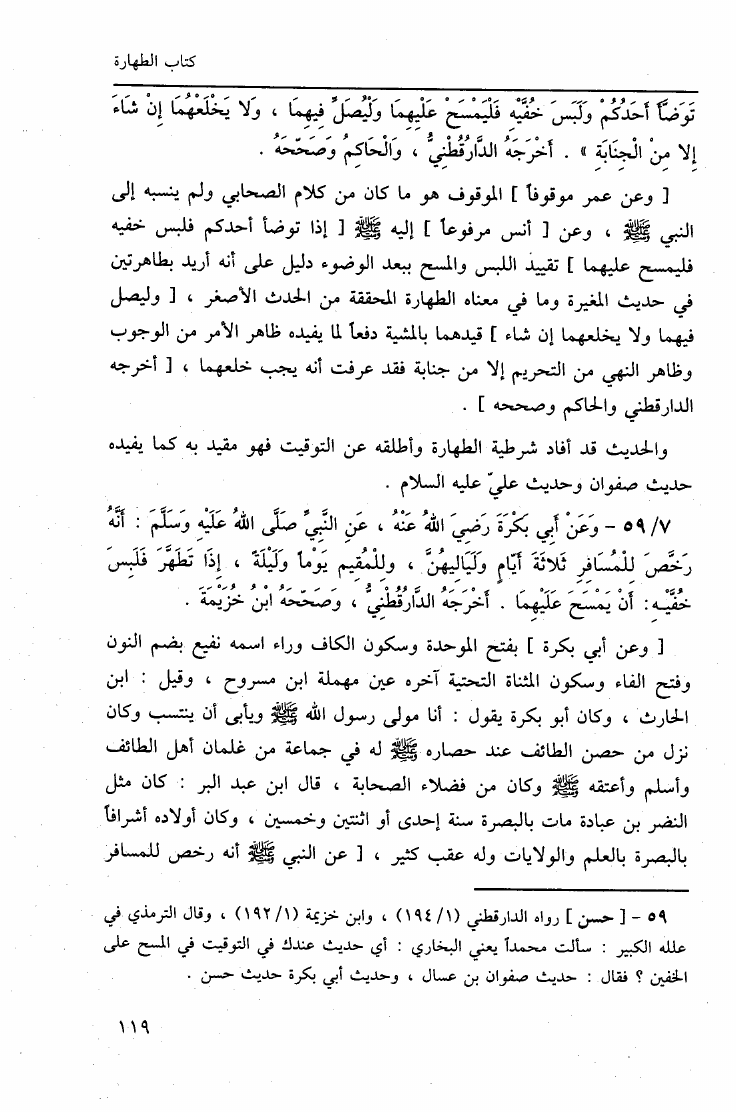 كتاب الطهارة
تَوَضَّأَ أَحَدُكُمْ وَلَبَسَ خُفَّيْهِ فَلْيَمْسَحْ عَلَيْهِمَا وَلْيُصَلِّ فِيهِمَا ، وَلَا يَخْلَعْهُمَا إِنْ شَاءَ
إِلا مِنْ الْجِنَابَةِ » . أَخْرَجَهُ الدَّارَقُطْنِيُّ ، وَالْحَاكِمُ وَصَحَّحَهُ .
[ وعن عمر موقوفاً ] الموقوف هو ما كان من كلام الصحابي ولم ينسبه إلى
النبي ﷺ ، وعن [ أنس مرفوعاً ] إليه ﷺ [ إذا توضأ أحدكم فلبس خفيه
فليمسح عليهما ] تقييد اللبس والمسح ببعد الوضوء دليل على أنه أريد بطاهرتين
في حديث المغيرة وما في معناه الطهارة المحققة من الحدث الأصغر ، [ وليصل
فيهما ولا يخلعهما إن شاء ] قيدهما بالمشية دفعاً لما يفيده ظاهر الأمر من الوجوب
وظاهر النهي من التحريم إلا من جنابة فقد عرفت أنه يجب خلعهما ، [ أخرجه
الدارقطني والحاكم وصححه ] .
والحديث قد أفاد شرطية الطهارة وأطلقه عن التوقيت فهو مقيد به كما يفيده
حديث صفوان وحديث عليّ عليه السلام .
٥٩/٧ - وَعَنْ أَبِي بَكْرَةَ رَضِيَ اللهُ عَنْهُ ، عَنِ النَّبِيِّ صَلَّى اللهُ عَلَيْهِ وَسَلَّمَ : أَنَّهُ
رَخَّصَ لِلْمُسَافِرِ ثَلاثَةَ أَيَّامٍ وَلَيَالِيهُنَّ ، وللْمُقِيمِ يَوْماً وَلَيْلَةً ، إِذَا تَطَهَّرَ فَلَبِسَ
خُفَّيْهِ: أَنْ يَمْسَحَ عَلَيْهِمَا . أَخْرَجَهُ الدَّارَقُطْنِيُّ ، وَصَحَّحَهُ ابْنُ خُزَيْمَةَ .
[ وعن أبي بكرة ] بفتح الموحدة وسكون الكاف وراء اسمه نفيع بضم النون
وفتح الفاء وسكون المثناة التحتية آخره عين مهملة ابن مسروح ، وقيل : ابن
الحارث ، وكان أبو بكرة يقول : أنا مولى رسول الله ﷺ ويأبى أن ينتسب وكان
نزل من حصن الطائف عند حصاره ﷺ له في جماعة من غلمان أهل الطائف
وأسلم وأعتقه ﷺ وكان من فضلاء الصحابة ، قال ابن عبد البر : كان مثل
النضر بن عبادة مات بالبصرة سنة إحدى أو اثنتين وخمسين ، وكان أولاده أشرافاً
بالبصرة بالعلم والولايات وله عقب كثير ، [ عن النبي ﷺ أنه رخص للمسافر
٥٩ - [ حسن ] رواه الدارقطني (١٩٤/١) ، وابن خزيمة (١٩٢/١) ، وقال الترمذي في
علله الكبير : سألت محمداً يعني البخاري : أي حديث عندك في التوقيت في المسح على
الخفين ؟ فقال : حديث صفوان بن عسال ، وحديث أبي بكرة حديث حسن .
١١٩